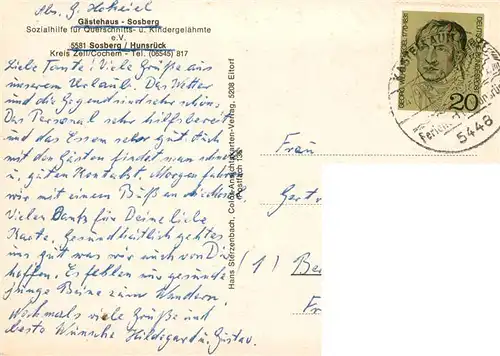 Abs. G. Hotreiel
Gästehaus - Sosberg
Sozialhilfe für Querschnitts- u. Kindergelähmte
e.V.
5581 Sosberg / Hunsrück
Kreis Zell/Cochem - Tel. (06545) 817
Liebe Tante! Viele Grüße aus
unserem Urlaub. Das Wetter
und die Gegend sind sehr schön.
Das Personal sehr hilfsbereit
und das Essen sehr gut. Auch
mit den Gästen findet man schnell
u. guten Kontakt. Morgen fahren
wir mit einem Bus an die Mosel.
Vielen Dank für Deine liebe
Karte. Gesundheitlich geht es
uns gut was wir auch von Dir
hoffen. Es fehlen nur gesunde
junge Beine zum Wandern.
Nochmals viele Grüße und
beste Wünsche Hildegard u. Gustav.
Hans Sterzenbach, Color-Ansichtskarten-Verlag, 5208 Eitorf
Postfach 136
Frau
(1)
20
KASTELLAUN
5448